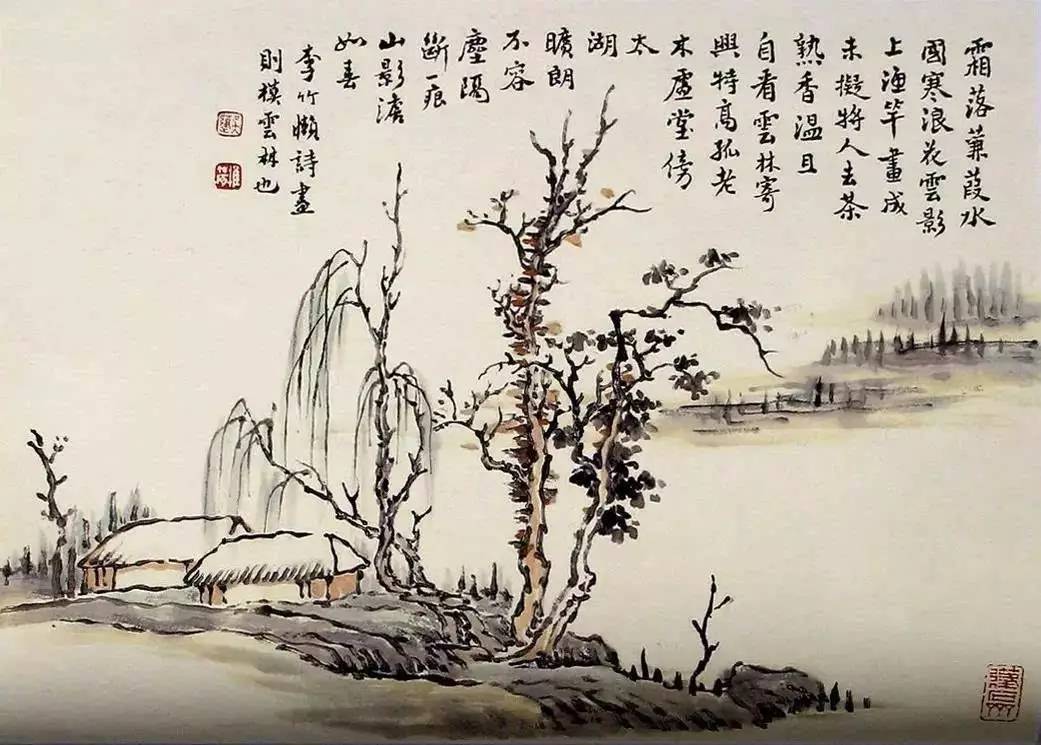 霜落蒹葭水
國寒浪花雲影
上漁竿畫成
未擬將人去茶
熟香溫且
自看雲林寄
興特高孤老
木虛堂傍
太
湖
曠朗
不容
塵隔
斷痕
山影澹
如春
李竹懶詩畫
則模雲林也